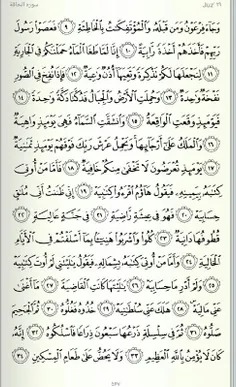 سورة الحاقة
وَجَآءَ فِرْعَوْنُ وَمَن قَبْلَهُۥ وَٱلْمُؤْتَفِكَٰتُ بِٱلْخَاطِئَةِ ٩ فَعَصَوْا۟ رَسُولَ
رَبِّهِمْ فَأَخَذَهُمْ أَخْذَةً رَّابِيَةً ١٠ إِنَّا لَمَّا طَغَا ٱلْمَآءُ حَمَلْنَٰكُمْ فِى ٱلْجَارِيَةِ
١١ لِنَجْعَلَهَا لَكُمْ تَذْكِرَةً وَتَعِيَهَآ أُذُنٌ وَٰعِيَةٌ ١٢ فَإِذَا نُفِخَ فِى ٱلصُّورِ
نَفْخَةٌ وَٰحِدَةٌ ١٣ وَحُمِلَتِ ٱلْأَرْضُ وَٱلْجِبَالُ فَدُكَّتَا دَكَّةً وَٰحِدَةً ١٤
فَيَوْمَئِذٍ وَقَعَتِ ٱلْوَاقِعَةُ ١٥ وَٱنشَقَّتِ ٱلسَّمَآءُ فَهِىَ يَوْمَئِذٍ وَاهِيَةٌ
١٦ وَٱلْمَلَكُ عَلَىٰٓ أَرْجَآئِهَا وَيَحْمِلُ عَرْشَ رَبِّكَ فَوْقَهُمْ يَوْمَئِذٍ ثَمَٰنِيَةٌ
١٧ يَوْمَئِذٍ تُعْرَضُونَ لَا تَخْفَىٰ مِنكُمْ خَافِيَةٌ ١٨ فَأَمَّا مَنْ أُوتِىَ
كِتَٰبَهُۥ بِيَمِينِهِۦ فَيَقُولُ هَآؤُمُ ٱقْرَءُوا۟ كِتَٰبِيَهْ ١٩ إِنِّى ظَنَنتُ أَنِّى مُلَٰقٍ
حِسَابِيَهْ ٢٠ فَهُوَ فِى عِيشَةٍ رَّاضِيَةٍ ٢١ فِى جَنَّةٍ عَالِيَةٍ ٢٢
قُطُوفُهَا دَانِيَةٌ ٢٣ كُلُوا۟ وَٱشْرَبُوا۟ هَنِيٓـًٔۢا بِمَآ أَسْلَفْتُمْ فِى ٱلْأَيَّامِ
ٱلْخَالِيَةِ ٢٤ وَأَمَّا مَنْ أُوتِىَ كِتَٰبَهُۥ بِشِمَالِهِۦ فَيَقُولُ يَٰلَيْتَنِى لَمْ أُوتَ كِتَٰبِيَهْ
٢٥ وَلَمْ أَدْرِ مَا حِسَابِيَهْ ٢٦ يَٰلَيْتَهَا كَانَتِ ٱلْقَاضِيَةَ ٢٧ مَآ أَغْنَىٰ
عَنِّى مَالِيَهْ ٢٨ هَلَكَ عَنِّى سُلْطَٰنِيَهْ ٢٩ خُذُوهُ فَغُلُّوهُ ٣٠ ثُمَّ ٱلْجَحِيمَ
صَلُّوهُ ٣١ ثُمَّ فِى سِلْسِلَةٍ ذَرْعُهَا سَبْعُونَ ذِرَاعًا فَٱسْلُكُوهُ ٣٢ إِنَّهُۥ
كَانَ لَا يُؤْمِنُ بِٱللَّهِ ٱلْعَظِيمِ ٣٣ وَلَا يَحُضُّ عَلَىٰ طَعَامِ ٱلْمِسْكِينِ ٣٤
٥٦٧